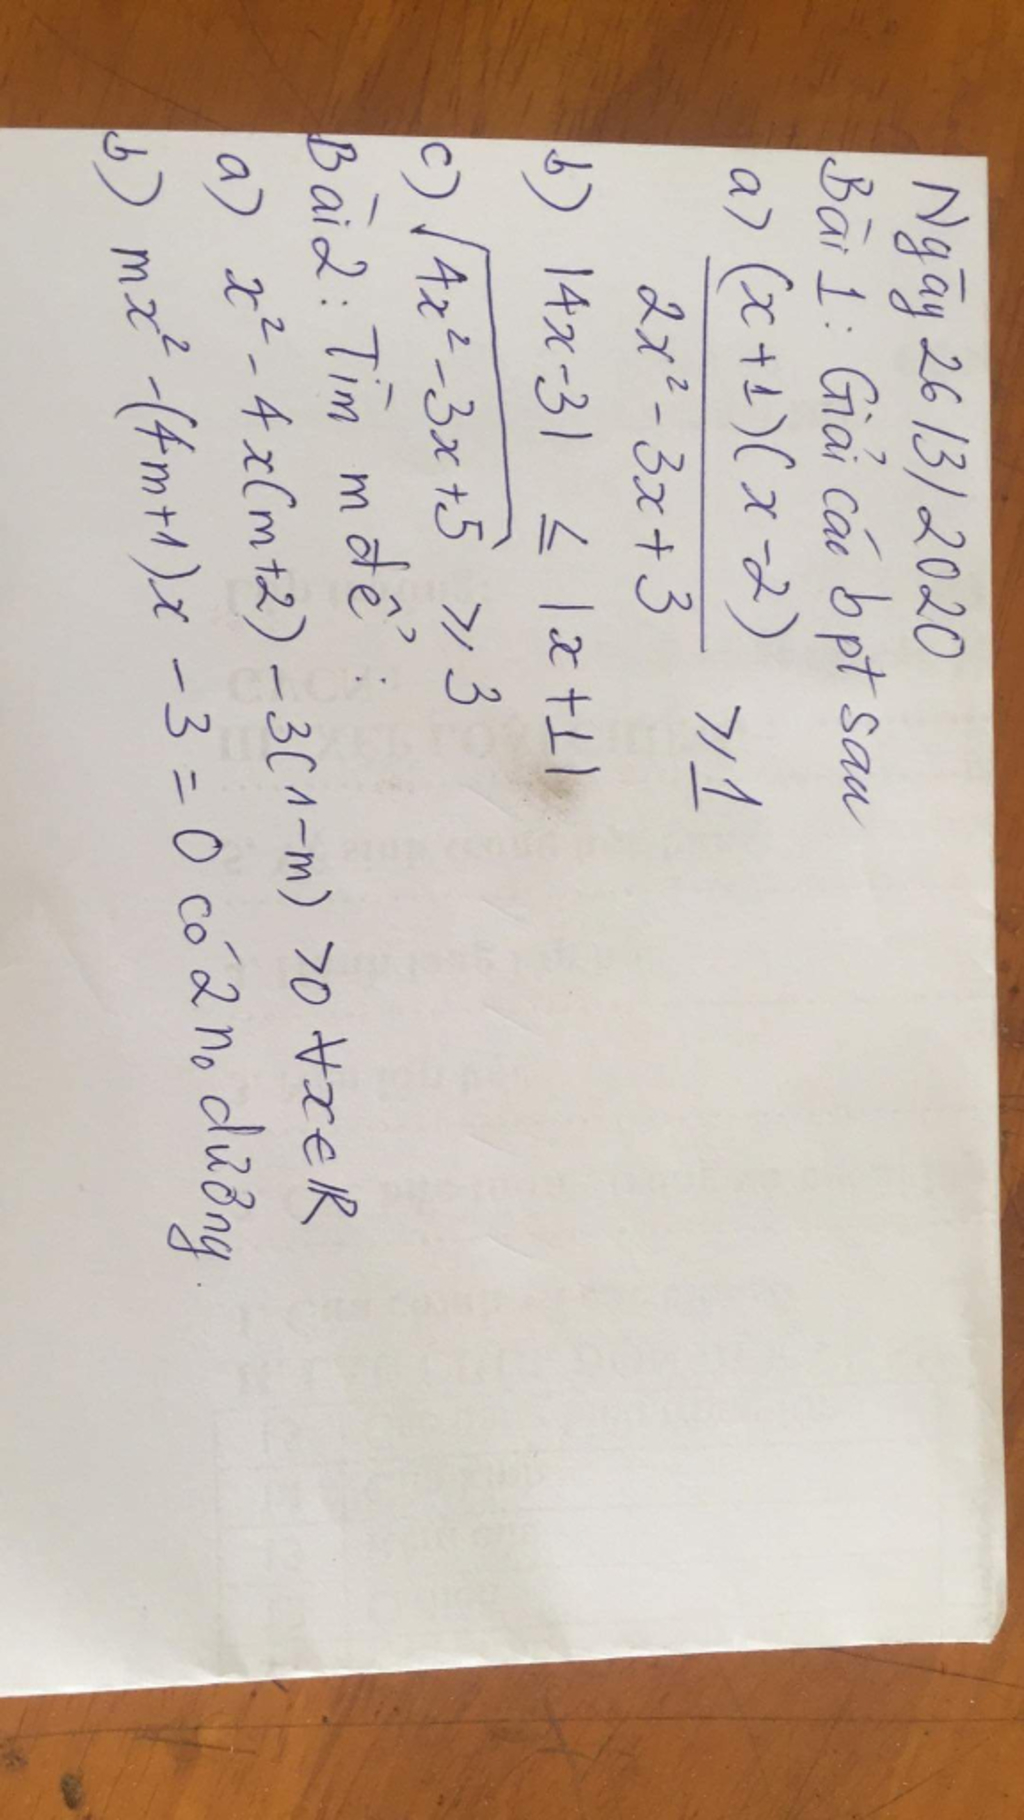 Ngày 26/3/2020
Bài 1: Giải các bpt sau
a) (x+1)(x-2) / 2x² - 3x + 3 ⩾ 1
b) |4x-3| ≤ |x+1|
c) √(4x² - 3x + 5) ⩾ 3
Bài 2: Tìm m để:
a) x² - 4x(m+2) - 3(1-m) > 0 ∀x ∈ ℝ
b) mx² - (4m+1)x - 3 = 0 có 2 n₀ dương.